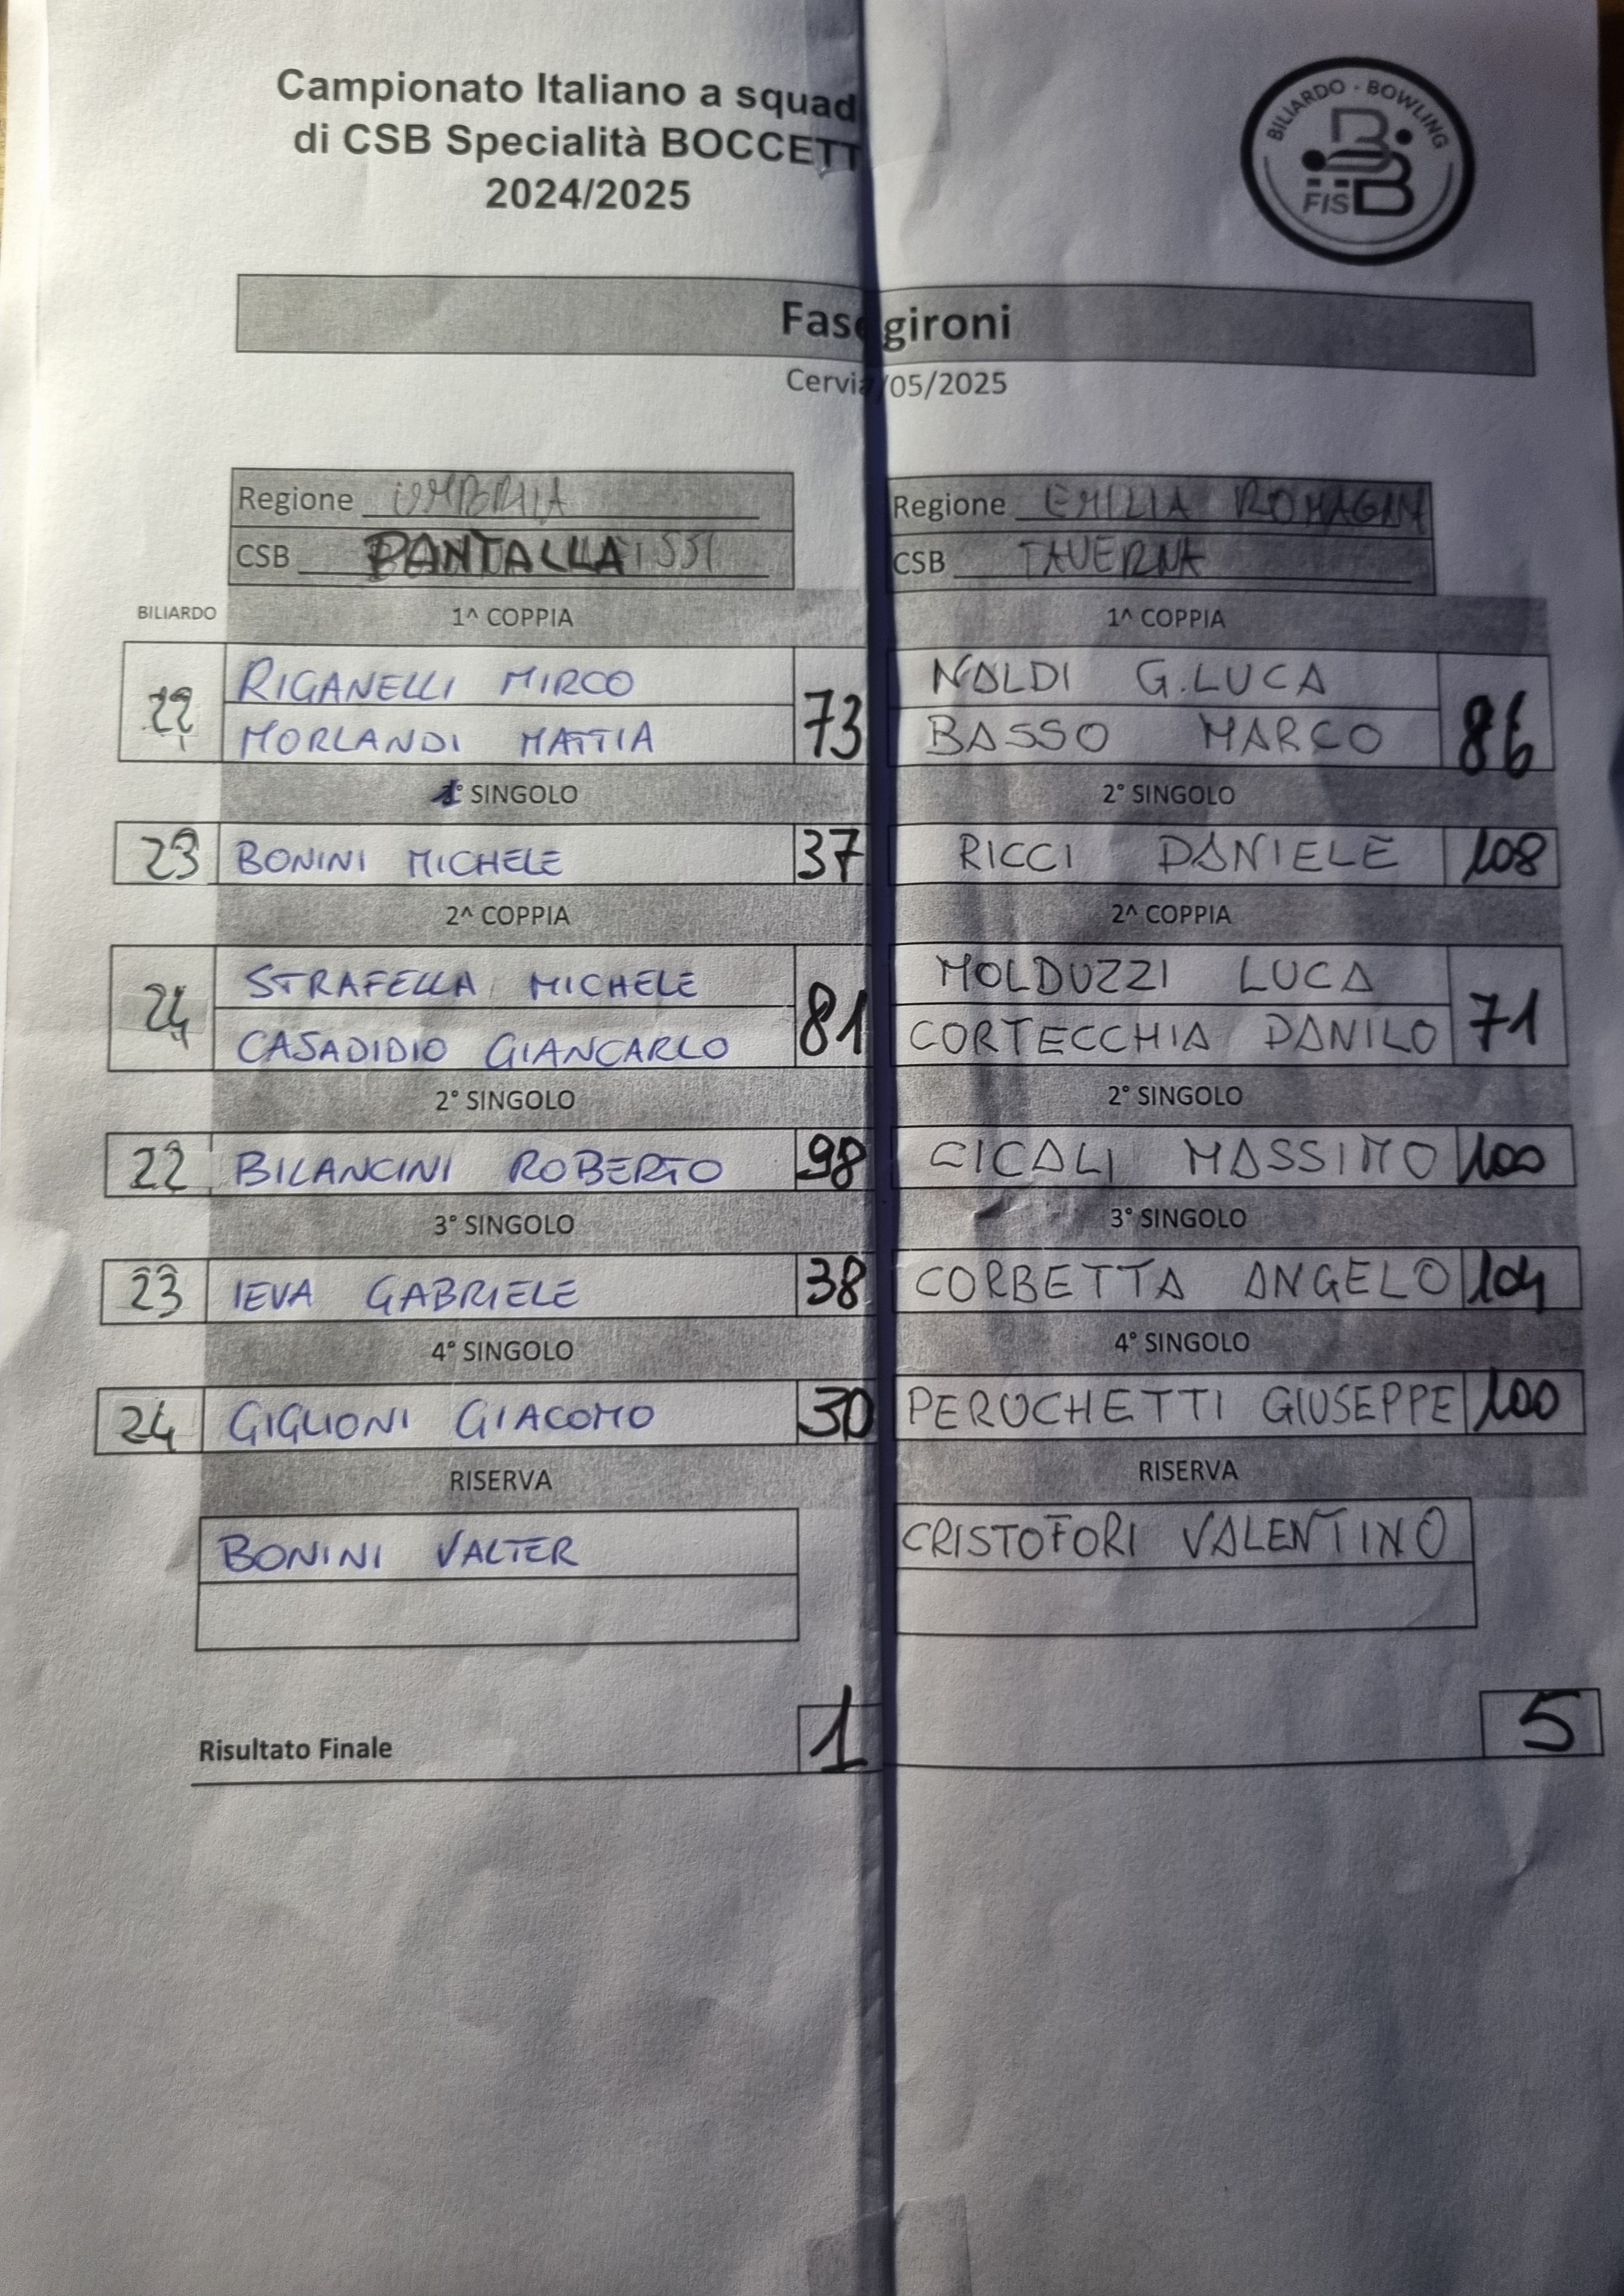 Campionato Italiano a squad
di CSB Specialità BOCCETT
2024/2025
BILIARDO - BOWLING
FISBB
Fase gironi
Cervia /05/2025
Regione UMBRIA
Regione EMILIA ROMAGNA
CSB PANTALLA
CSB TAVERNA
BILIARDO 1^ COPPIA 1^ COPPIA
22 RIGANELLI MIRCO 73 NALDI G.LUCA 86
MORLANDI MATTIA BASSO MARCO
1° SINGOLO 2° SINGOLO
23 BONINI MICHELE 37 RICCI DANIELE 108
2^ COPPIA 2^ COPPIA
24 STRAFELLA MICHELE 81 MOLDUZZI LUCA 71
CASADIDIO GIANCARLO CORTECCHIA DANILO
2° SINGOLO 2° SINGOLO
22 BILANCINI ROBERTO 98 CICALI MASSIMO 100
3° SINGOLO 3° SINGOLO
23 IEVA GABRIELE 38 CORBETTA ANGELO 104
4° SINGOLO 4° SINGOLO
24 GIGLIONI GIACOMO 30 PEROCHETTI GIUSEPPE 100
RISERVA RISERVA
BONINI VALTER CRISTOFORI VALENTINO
Risultato Finale 1 5